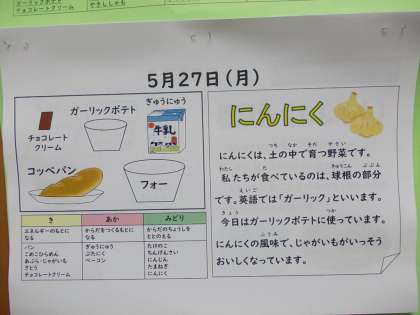 ガーリックポテト
チョコレートクリーム
やさいししゃも
5月27日(月)
チョコレート
クリーム
ガーリックポテト
ぎゅうにゅう
牛乳
コッペパン
フォー
き
あか
みどり
エネルギーのもとに
なる
からだをつくるもとに
なる
からだのちょうしを
ととのえる
パン
こめこひらめん
あぶら・じゃがいも
さとう
チョコレートクリーム
ぎゅうにゅう
ぶたにく
ベーコン
たけのこ
ちんげんさい
にんじん
たまねぎ
にんにく
にんにく
にんにくは、土の中で育つ野菜です。
私たちが食べているのは、球根の部分
です。英語では「ガーリック」といいます。
今日はガーリックポテトに使っています。
にんにくの風味で、じゃがいもがいっそう
おいしくなっています。